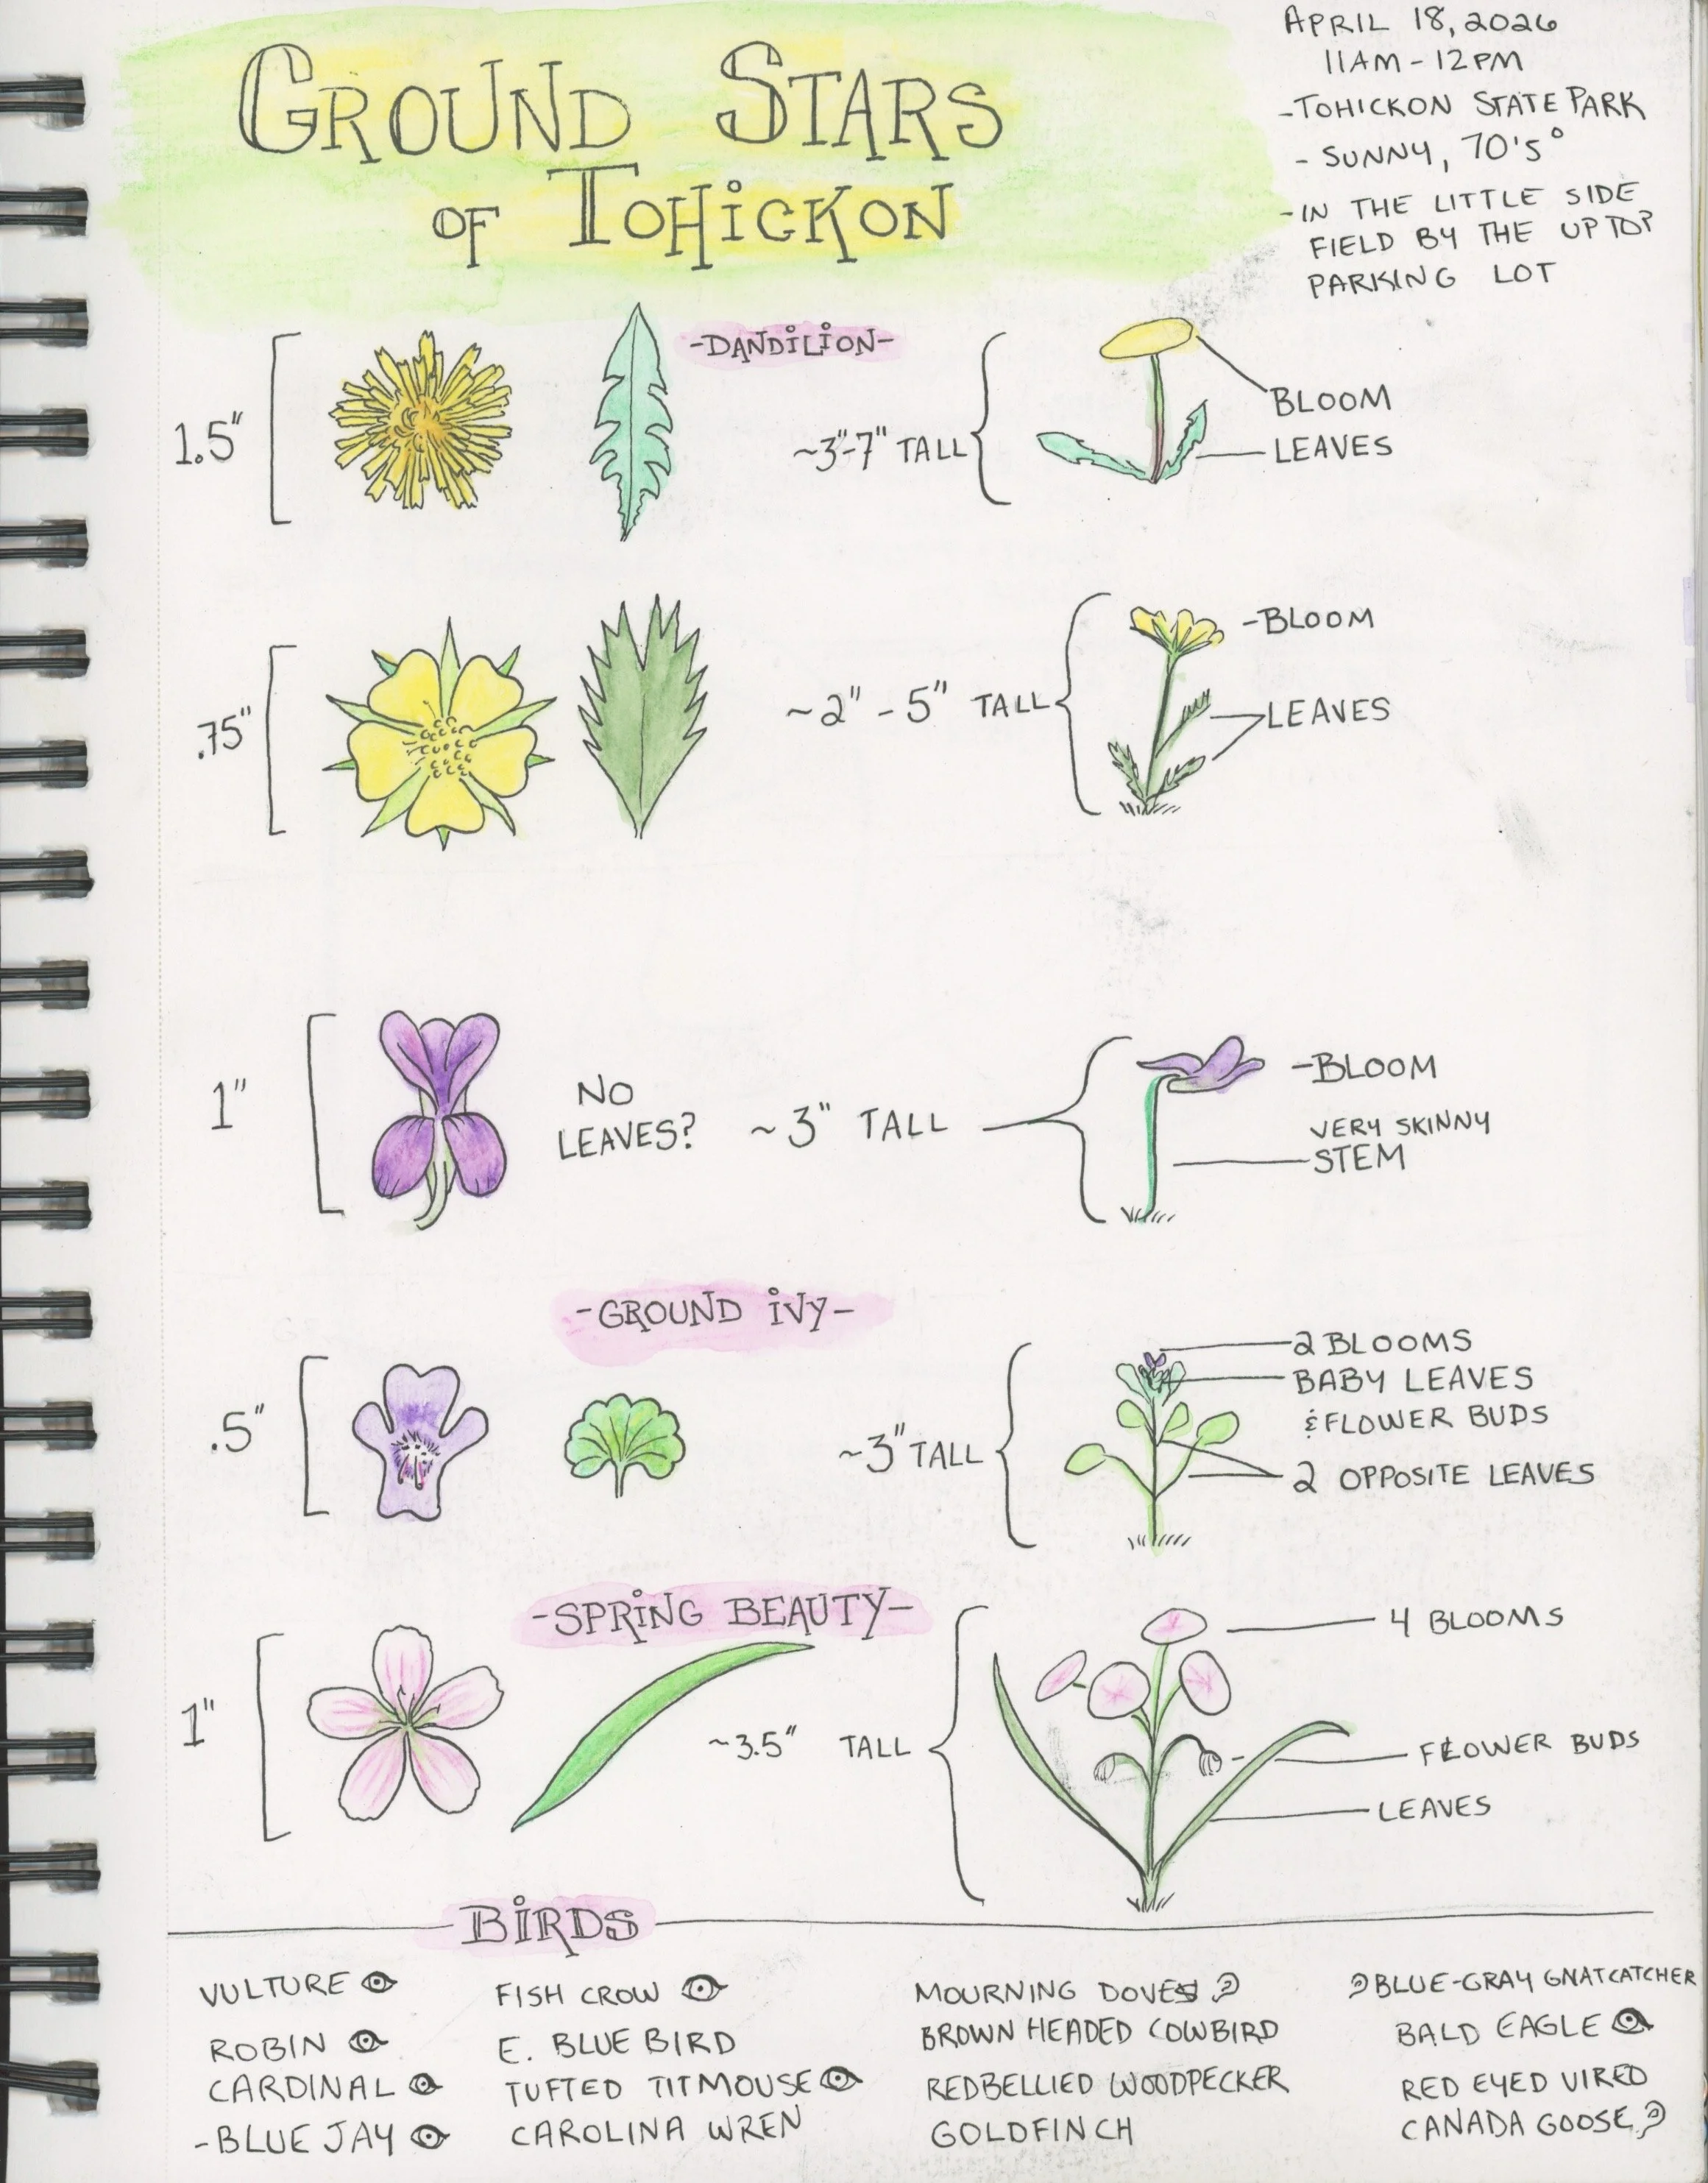 GROUND STARS
OF TOHICKON
APRIL 18, 2026
11AM - 12PM
-TOHICKON STATE PARK
- SUNNY, 70'S°
-IN THE LITTLE SIDE
FIELD BY THE UP TOP
PARKING LOT
-DANDILION-
1.5"
~3"-7" TALL
BLOOM
LEAVES
.75"
~2" - 5" TALL
-BLOOM
LEAVES
1"
NO
LEAVES?
~3" TALL
-BLOOM
VERY SKINNY
STEM
-GROUND IVY-
.5"
~3" TALL
2 BLOOMS
BABY LEAVES
& FLOWER BUDS
2 OPPOSITE LEAVES
-SPRING BEAUTY-
1"
~3.5" TALL
4 BLOOMS
FLOWER BUDS
LEAVES
BIRDS
VULTURE
ROBIN
CARDINAL
-BLUE JAY
FISH CROW
E. BLUE BIRD
TUFTED TITMOUSE
CAROLINA WREN
MOURNING DOVES
BROWN HEADED COWBIRD
REDBELLIED WOODPECKER
GOLDFINCH
BLUE-GRAY GNATCATCHER
BALD EAGLE
RED EYED VIREO
CANADA GOOSE